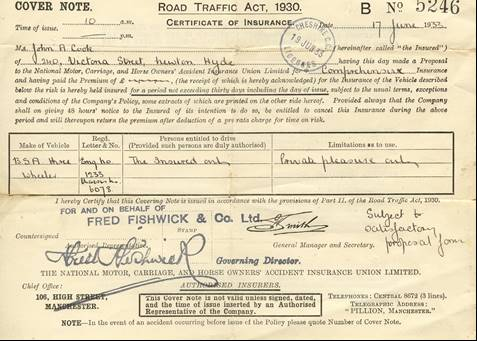 COVER NOTE. ROAD TRAFFIC ACT, 1930. B No 5246
Time of issue 10 a.m. CERTIFICATE OF INSURANCE. Date 17 June 1933
p.m.
CHESHIRE C.C.
19 JUN 33
LICENCES
Mr John A. Cook (hereinafter called "the Insured")
of 240, Victoria Street, Newton Hyde having this day made a Proposal
to the National Motor, Carriage, and Horse Owners' Accident Insurance Union Limited for Comprehensive Insurance
and having paid the Premium of £ (the receipt of which is hereby acknowledged) for the Insurance of the Vehicle described
below the risk is hereby held insured for a period not exceeding thirty days including the day of issue, subject to the usual terms, exceptions
and conditions of the Company's Policy, some extracts of which are printed on the other side hereof. Provided always that the Company
shall on giving 48 hours' notice to the Insured of its intention to do so, be entitled to cancel this Insurance during the above
period and will thereupon return the premium after deduction of a pro rata charge for time on risk.
Make of Vehicle
Regd. Letter & No.
Persons entitled to drive
(Provided such persons are duly authorised)
Limitations as to use.
BSA Three Wheeler
Eng No 1233
Chassis No 6078
The Insured only
Private pleasure only
I hereby Certify that this Covering Note is issued in accordance with the provisions of Part II. of the Road Traffic Act, 1930.
FOR AND ON BEHALF OF
FRED FISHWICK & Co. Ltd.
STAMP
Smith
Subject to satisfactory proposal form
Countersigned
Authorised Representative
Fred Fishwick
Governing Director.
General Manager and Secretary.
THE NATIONAL MOTOR, CARRIAGE, AND HORSE OWNERS' ACCIDENT INSURANCE UNION LIMITED.
Chief Office: AUTHORISED INSURERS.
106, HIGH STREET,
MANCHESTER.
This Cover Note is not valid unless signed, dated,
and the time of issue inserted by an Authorised
Representative of the Company.
TELEPHONE: CENTRAL 8672 (3 lines).
TELEGRAPHIC ADDRESS:
"PILLION, MANCHESTER."
NOTE—In the event of an accident occurring before issue of the Policy please quote Number of Cover Note.